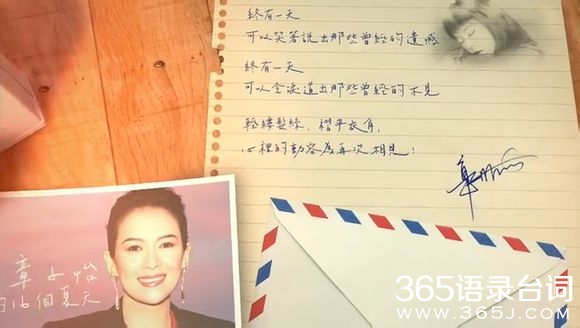 終有一天
可以笑著說出那些曾經的遺憾
終有一天
可以含淚道出那些曾經的不見
輕縷髮絲，褶平衣角，
心裡的動容為再次相見！
章子怡
的16個夏天
365语录台词
www.365J.com